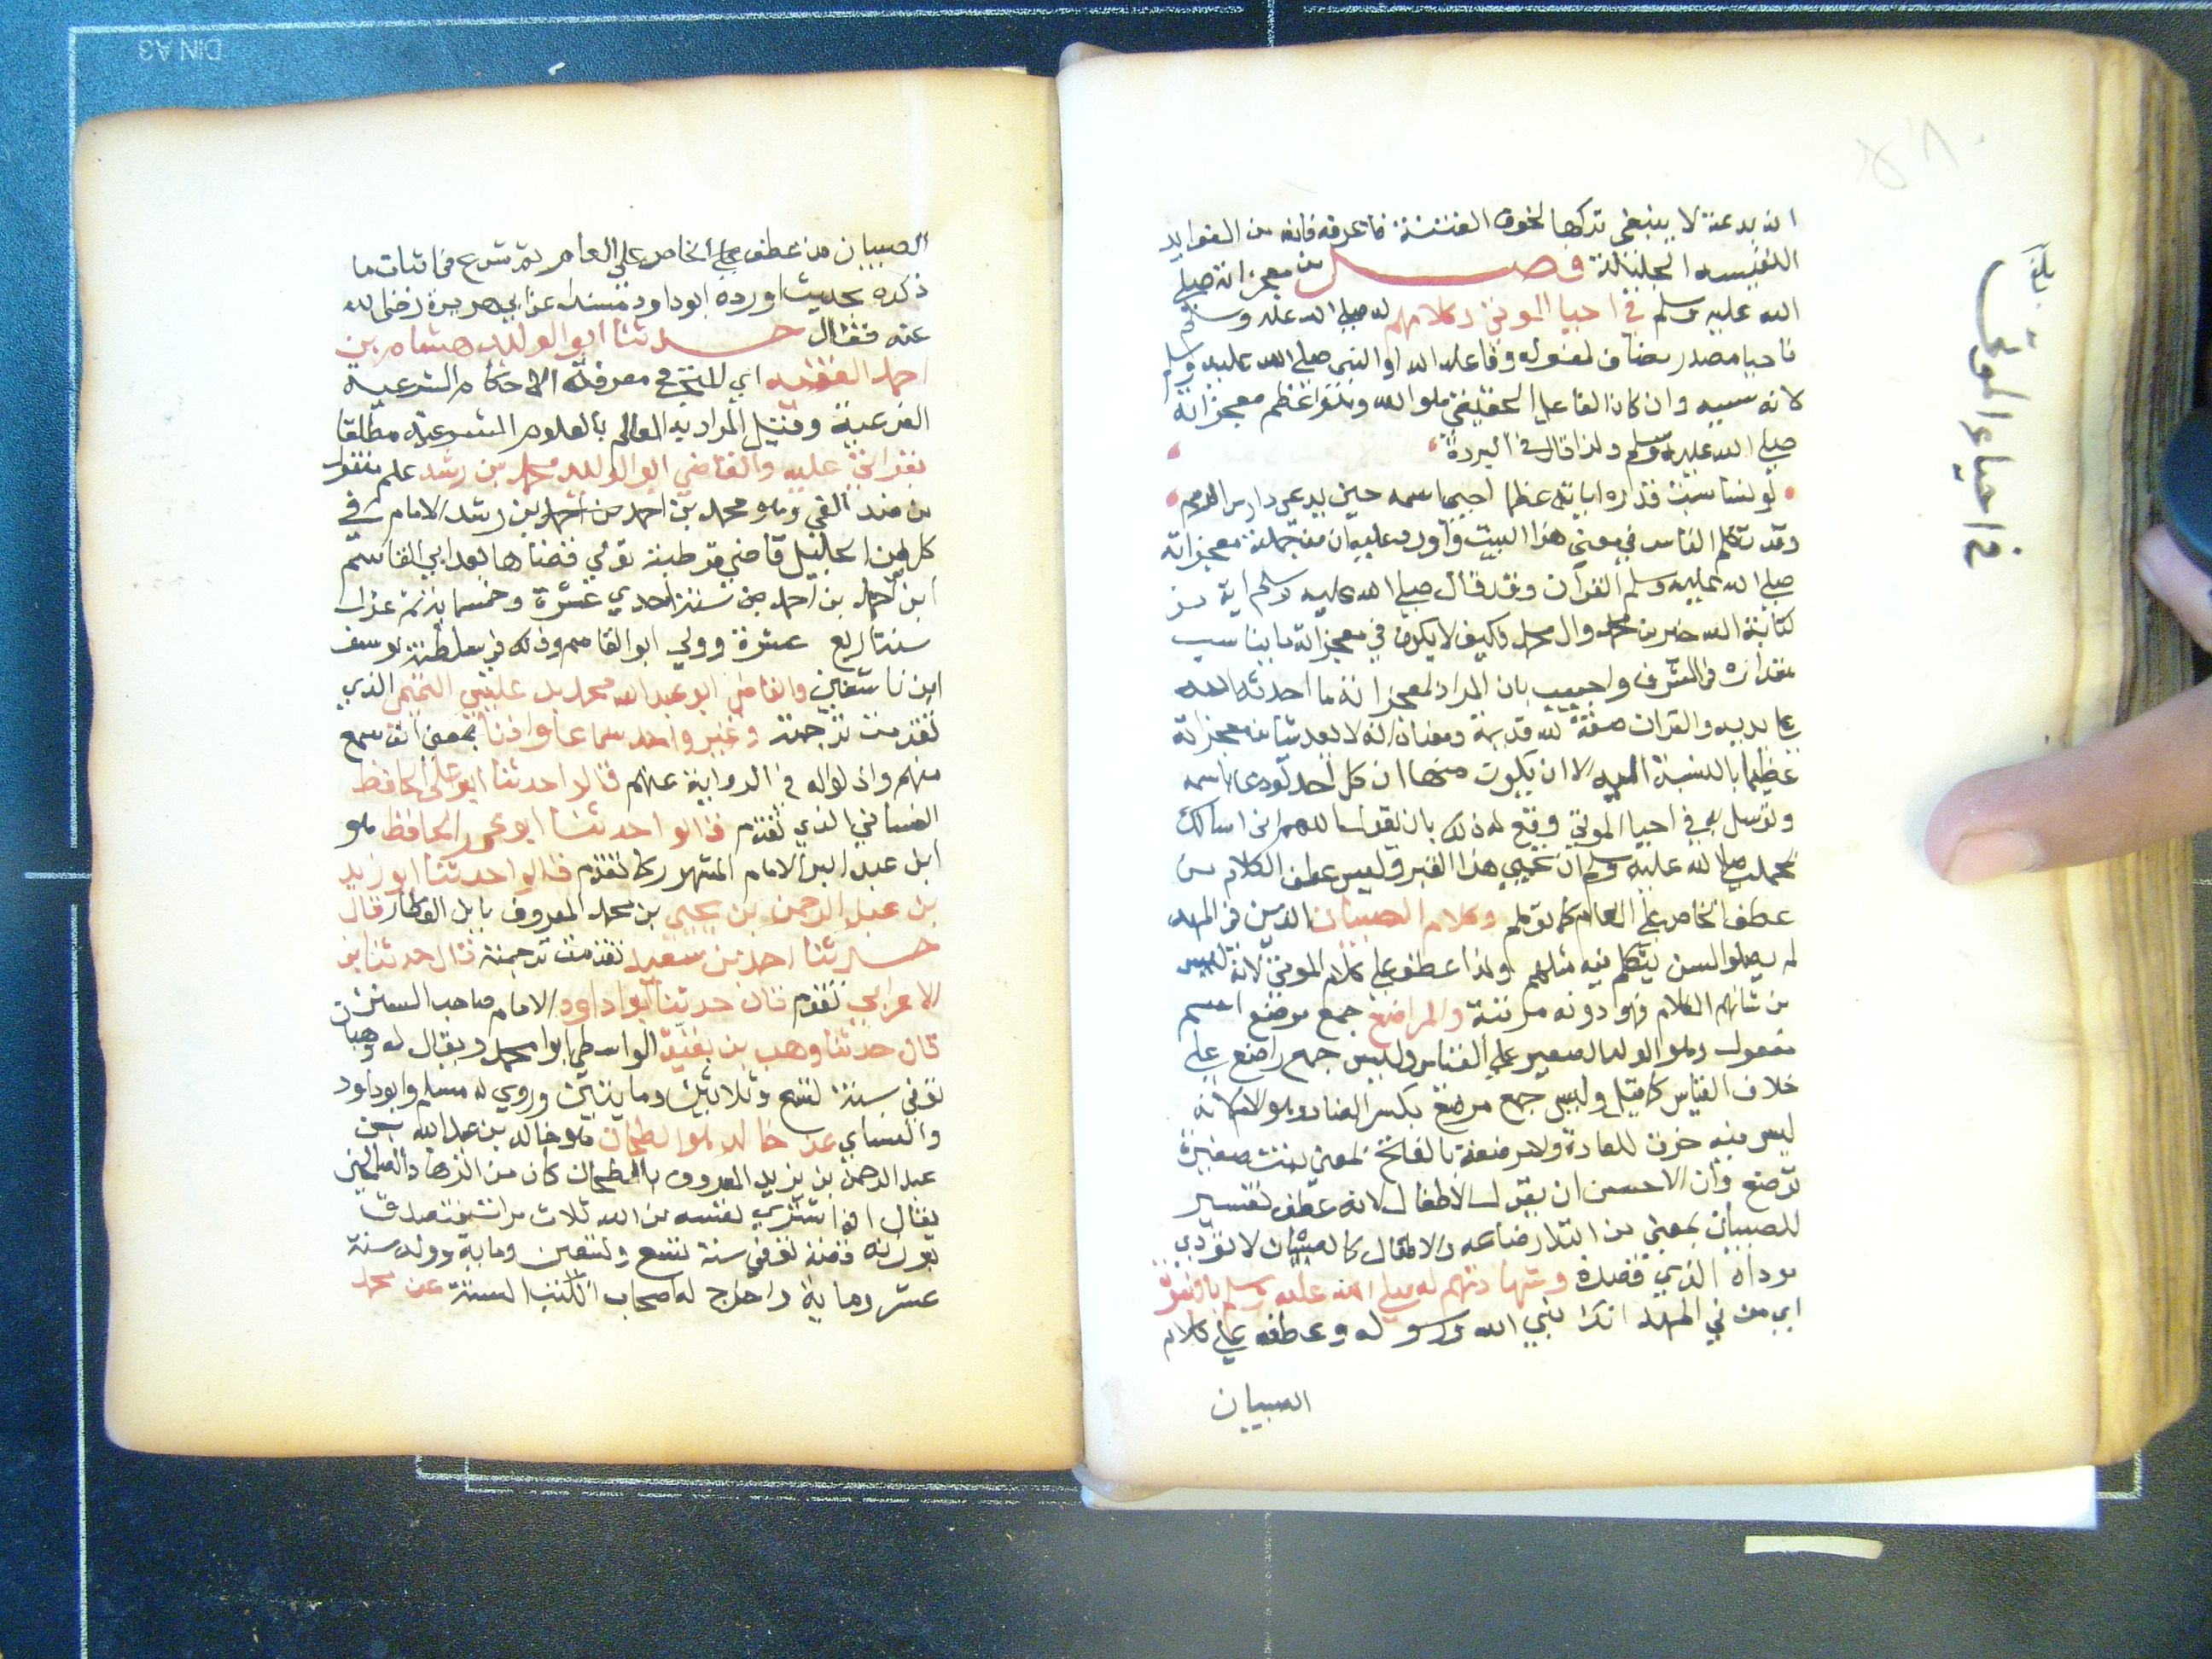 انه بدعة لا ينبغي تركها لخوف الفتنة فاعرفه فانه من الفوايد
النفيسه الجليلة فصل من معجزاته صلي
الله عليه وسلم في احيا الموتي وكلامهم له صلي الله عليه وسلم
فاحيا مصدر مضاف لمفعوله وفاعله الله او النبي صلي الله عليه وسلم
لانه سببه وان كان الفاعل الحقيقي هو الله وهو اعظم معجزاته
صلي الله عليه وسلم ولذا قال في البردة
لو ناسبت قدره اياته عظما احيي اسمه حين يدعي دارس الرمم
وقد تكلم الناس في معني هذا البيت واورد عليه ان من جملة معجزاته
صلي الله عليه وسلم القران وقد قال صلي الله عليه وسلم اية من
كتاب الله خير من محمد وال محمد فكيف لا يكون في معجزاته ما يناسب
مقداره في الشرف واجيب بان المراد بمعجزاته ما احدثه الله
علي يديه والقران صفة لله قديمة ومعناه انه لا يعد شيا من معجزاته
عظيما بالنسبة اليه الا ان يكون منها ان كل احد لو دعا باسمه
وتوسل به في احيا الموتي وقع له ذلك بان يقول اللهم اني اسالك
بمحمد صلي الله عليه وسلم ان تحيي هذا القبر وليس عطف الكلام من
عطف الخاص علي العام كما توهم وكلام الصبيان الذين في المهد
لم يصلوا لسن يتكلم فيه مثلهم ولذا عطف علي كلام الموتي لانه ليس
من شانهم الكلام فهو دونه مرتبة والمراضع جمع مرضع اسم
مفعول وهو الولد الصغير علي القياس وليس جمع راضع علي
خلاف القياس كما قيل وليس جمع مرضع بكسر الضاد وهو الام لانه
ليس فيه خرق للعادة ولا مرضعة بالفتح بمعني بنت صغيرة
ترضع وان الاحسن ان يقول الاطفال لانه عطف تفسير
للصبيان بمعني من ابتدا رضاعه والاطفال كالصبيان لا تؤدي
موداه الذي قصده وشهادتهم له صلي الله عليه وسلم بالنبوة
اي من في المهد انك نبي الله ورسوله وعطفه علي كلام
الصبيان
في احياء الموتى
الصبيان من عطف الخاص علي العام ثم شرع في اثبات ما
ذكره بحديث اورده ابو داود مسندا عن ابي هريرة رضي الله
عنه فقال حدثنا ابو الوليد هشام بن
احمد الفقيه اي المتبحر في معرفة الاحكام الشرعية
الفرعية وقيل المراد به العالم بالعلوم الشرعية مطلقا
بقراتي عليه والقاضي ابو الوليد محمد بن رشد علم منقول
من ضد الغي وهو محمد بن احمد بن احمد بن رشد الامام في
كل فن الجليل قاضي قرطبة تولي قضاها بعد ابي القاسم
ابن احمد بن احمد من سنة احدي عشرة وخمسماية ثم عزل
سنة اربع عشرة وولي ابو القاسم وذلك في سلطنة يوسف
ابن تاشفين والقاضي ابو عبد الله محمد بن عيسي التميمي الذي
تقدمت ترجمته وغير واحد سماعا واذنا بمعني انه سمع
منهم واذنوا له في الرواية عنهم قالوا حدثنا ابو علي الحافظ
الغساني الذي تقدم قالوا حدثنا ابو عمر الحافظ هو
ابن عبد البر الامام المشهور كما تقدم قالوا حدثنا ابو زيد
بن عبد الرحمن بن يحيي بن محمد المعروف بابن العطار قال
حدثنا احمد بن سعيد تقدمت ترجمته قال حدثنا ابن
الاعرابي تقدم قال حدثنا ابو داود الامام صاحب السنن
قال حدثنا وهب بن بقية الواسطي ابو محمد ويقال له وهبان
توفي سنة تسع وثلاثين ومايتين وروي له مسلم وابو داود
والنساي عن خالد هو الطحان هو خالد بن عبد الله بن
عبد الرحمن بن يزيد المعروف بالطحان كان من الزهاد الصالحين
يقال انه اشتري نفسه من الله ثلاث مرات يتصدق
بوزنه فضة توفي سنة تسع وتسعين وماية وولد سنة
عشر وماية واخرج له اصحاب الكتب الستة عن محمد
DIN A3